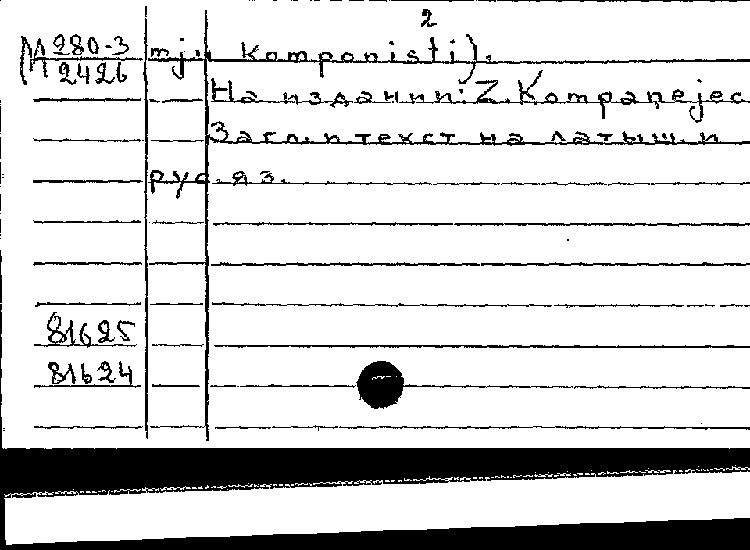 2
М 280-3 mju Komponisti).
2426
На издании: Z. Kompaņejec
Загл. и текст на латыш. и
рус. яз.
81625
81624